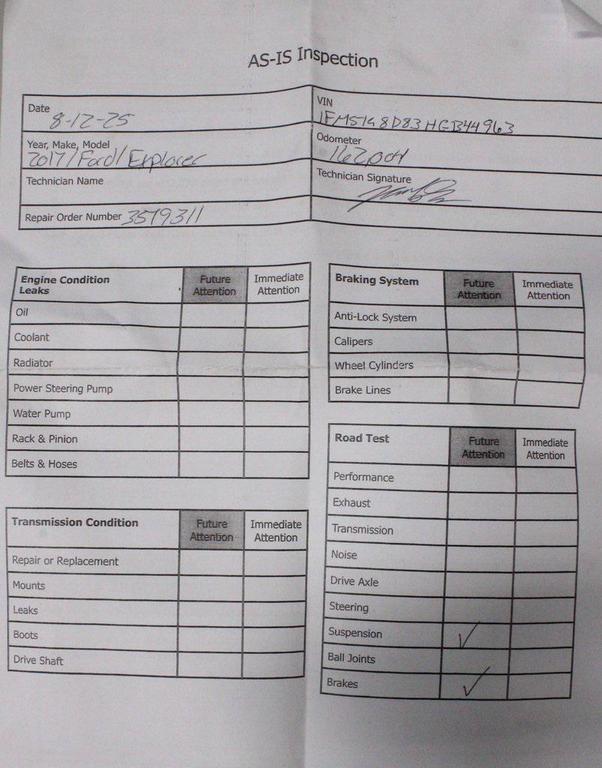 AS-IS Inspection
Date 8-12-25
VIN 1FM5K8D83HGB44963
Year, Make, Model 2017/Ford/Explorer
Odometer
Technician Name
Technician Signature
Repair Order Number 3579311
Engine Condition Leaks Future Attention Immediate Attention
Oil
Coolant
Radiator
Power Steering Pump
Water Pump
Rack & Pinion
Belts & Hoses
Transmission Condition Future Attention Immediate Attention
Repair or Replacement
Mounts
Leaks
Boots
Drive Shaft
Braking System Future Attention Immediate Attention
Anti-Lock System
Calipers
Wheel Cylinders
Brake Lines
Road Test Future Attention Immediate Attention
Performance
Exhaust
Transmission
Noise
Drive Axle
Steering
Suspension ✓
Ball Joints
Brakes ✓